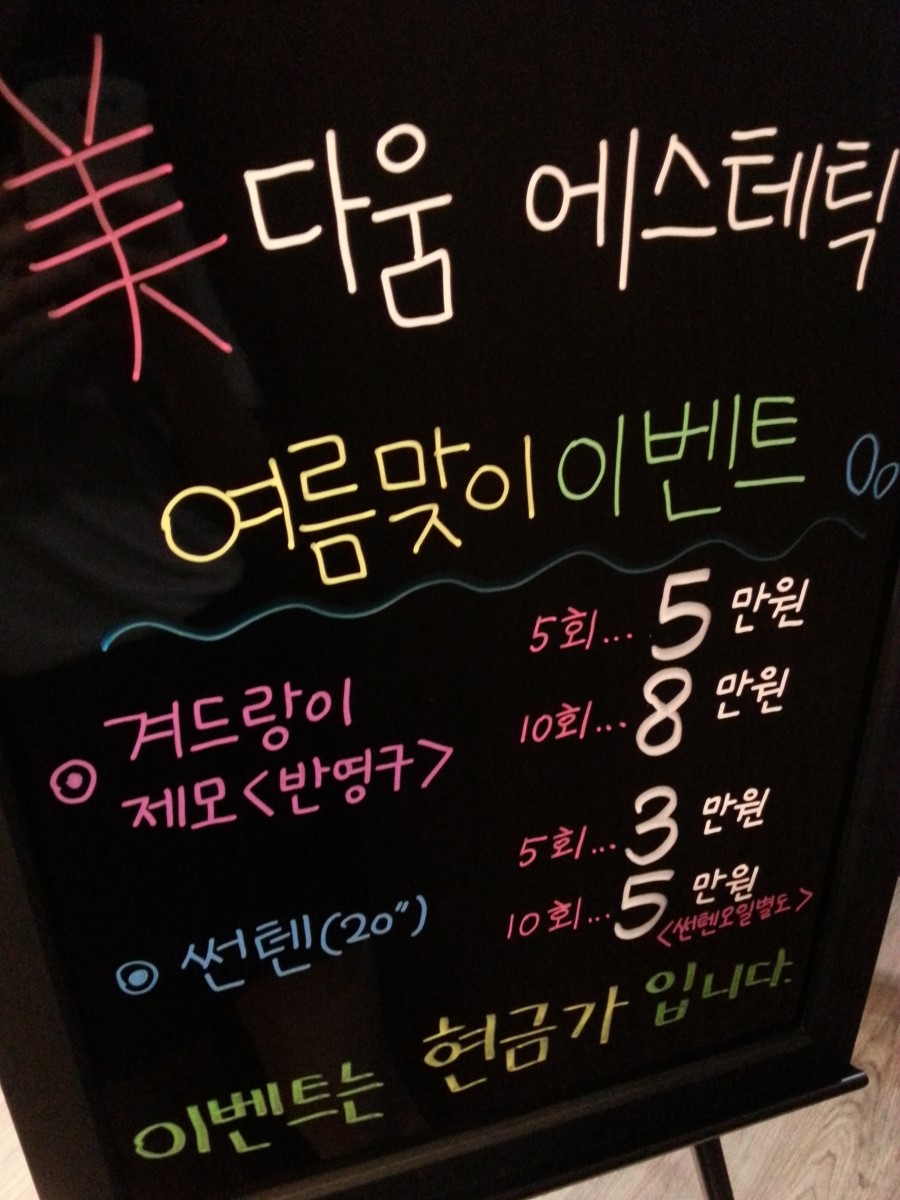 美다움 에스테틱
여름맞이 이벤트
겨드랑이
제모<반영구>
5회... 5만원
10회... 8만원
썬텐(20")
5회... 3만원
10회... 5만원
<썬텐오일별도>
이벤트는 현금가 입니다.